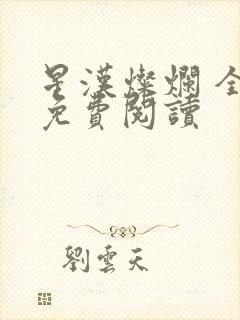 星漢燦爛全
免費閱讀
劉雲天